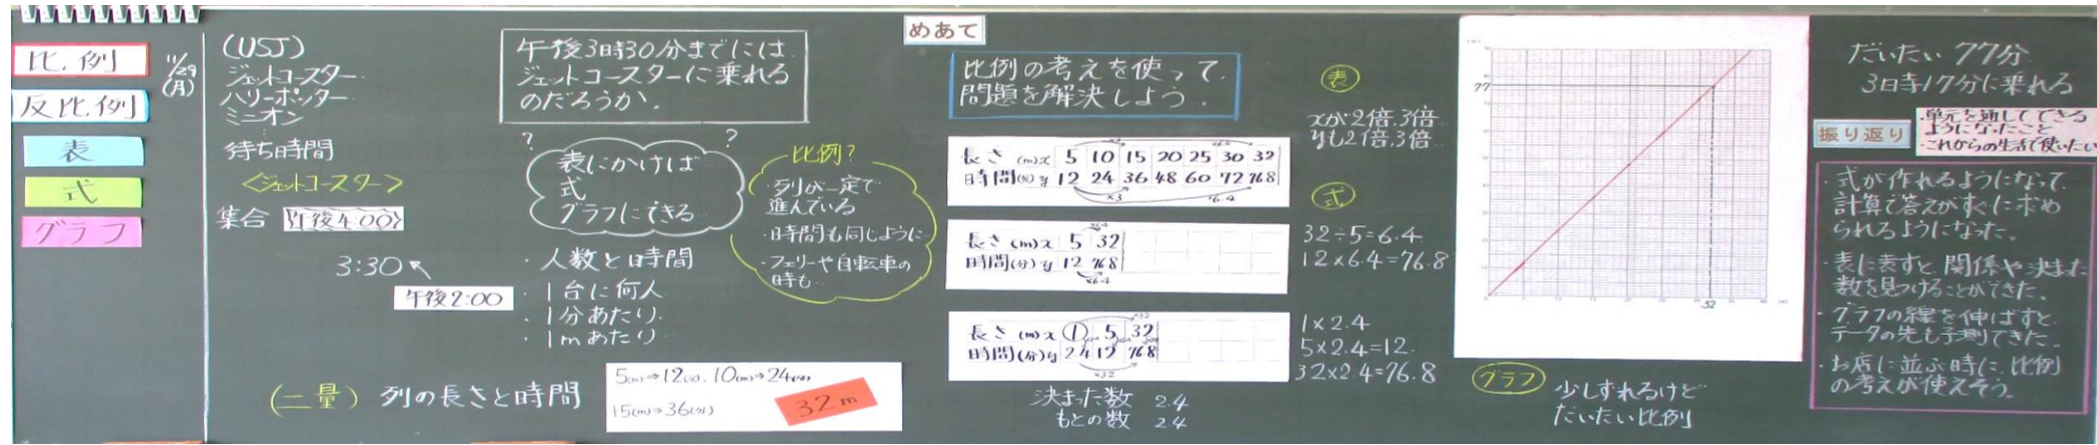 比例
反比例
表
式
グラフ
11/29
(月)
(USJ)
ジェットコースター
ハリーポッター
ミニオン
待ち時間
<ジェットコースター>
集合 午後4:00
3:30
午後2:00
(二量) 列の長さと時間
午後3時30分までには
ジェットコースターに乗れる
のだろうか.
? ?
表にかけば
式
グラフにできる
・人数と時間
・1台に何人
・1分あたり
・1mあたり
5(m)⇒12(分), 10(m)⇒24(分)
15(m)⇒36(分)
32m
比例?
・列が一定で
進んでいる
・時間も同じように
・フェリーや自転車の
時も
めあて
比例の考えを使って
問題を解決しよう.
長さ(m)x 5 10 15 20 25 30 32
時間(分)y 12 24 36 48 60 72 76.8
×3 ×6.4
長さ(m)x 5 32
時間(分)y 12 76.8
×6.4
長さ(m)x 1 5 32
時間(分)y 2.4 12 76.8
×32
×32
決まった数 2.4
もとの数 2.4
表
xが2倍.3倍
yも2倍.3倍
式
32÷5=6.4
12×6.4=76.8
1×2.4
5×2.4=12.
32×2.4=76.8
77
32
グラフ
少しずれるけど
だいたい比例
だいたい 77分
3時17分に乗れる
振り返り
・単元を通してできる
ようになったこと
・これからの生活で使いたい
・式が作れるようになって
計算で答えがすぐに求め
られるようになった。
・表に表すと関係や決まった
数を見つけることができた。
・グラフの線を伸ばすと
データの先も予測できた。
・お店に並ぶ時に比例
の考えが使えそう。